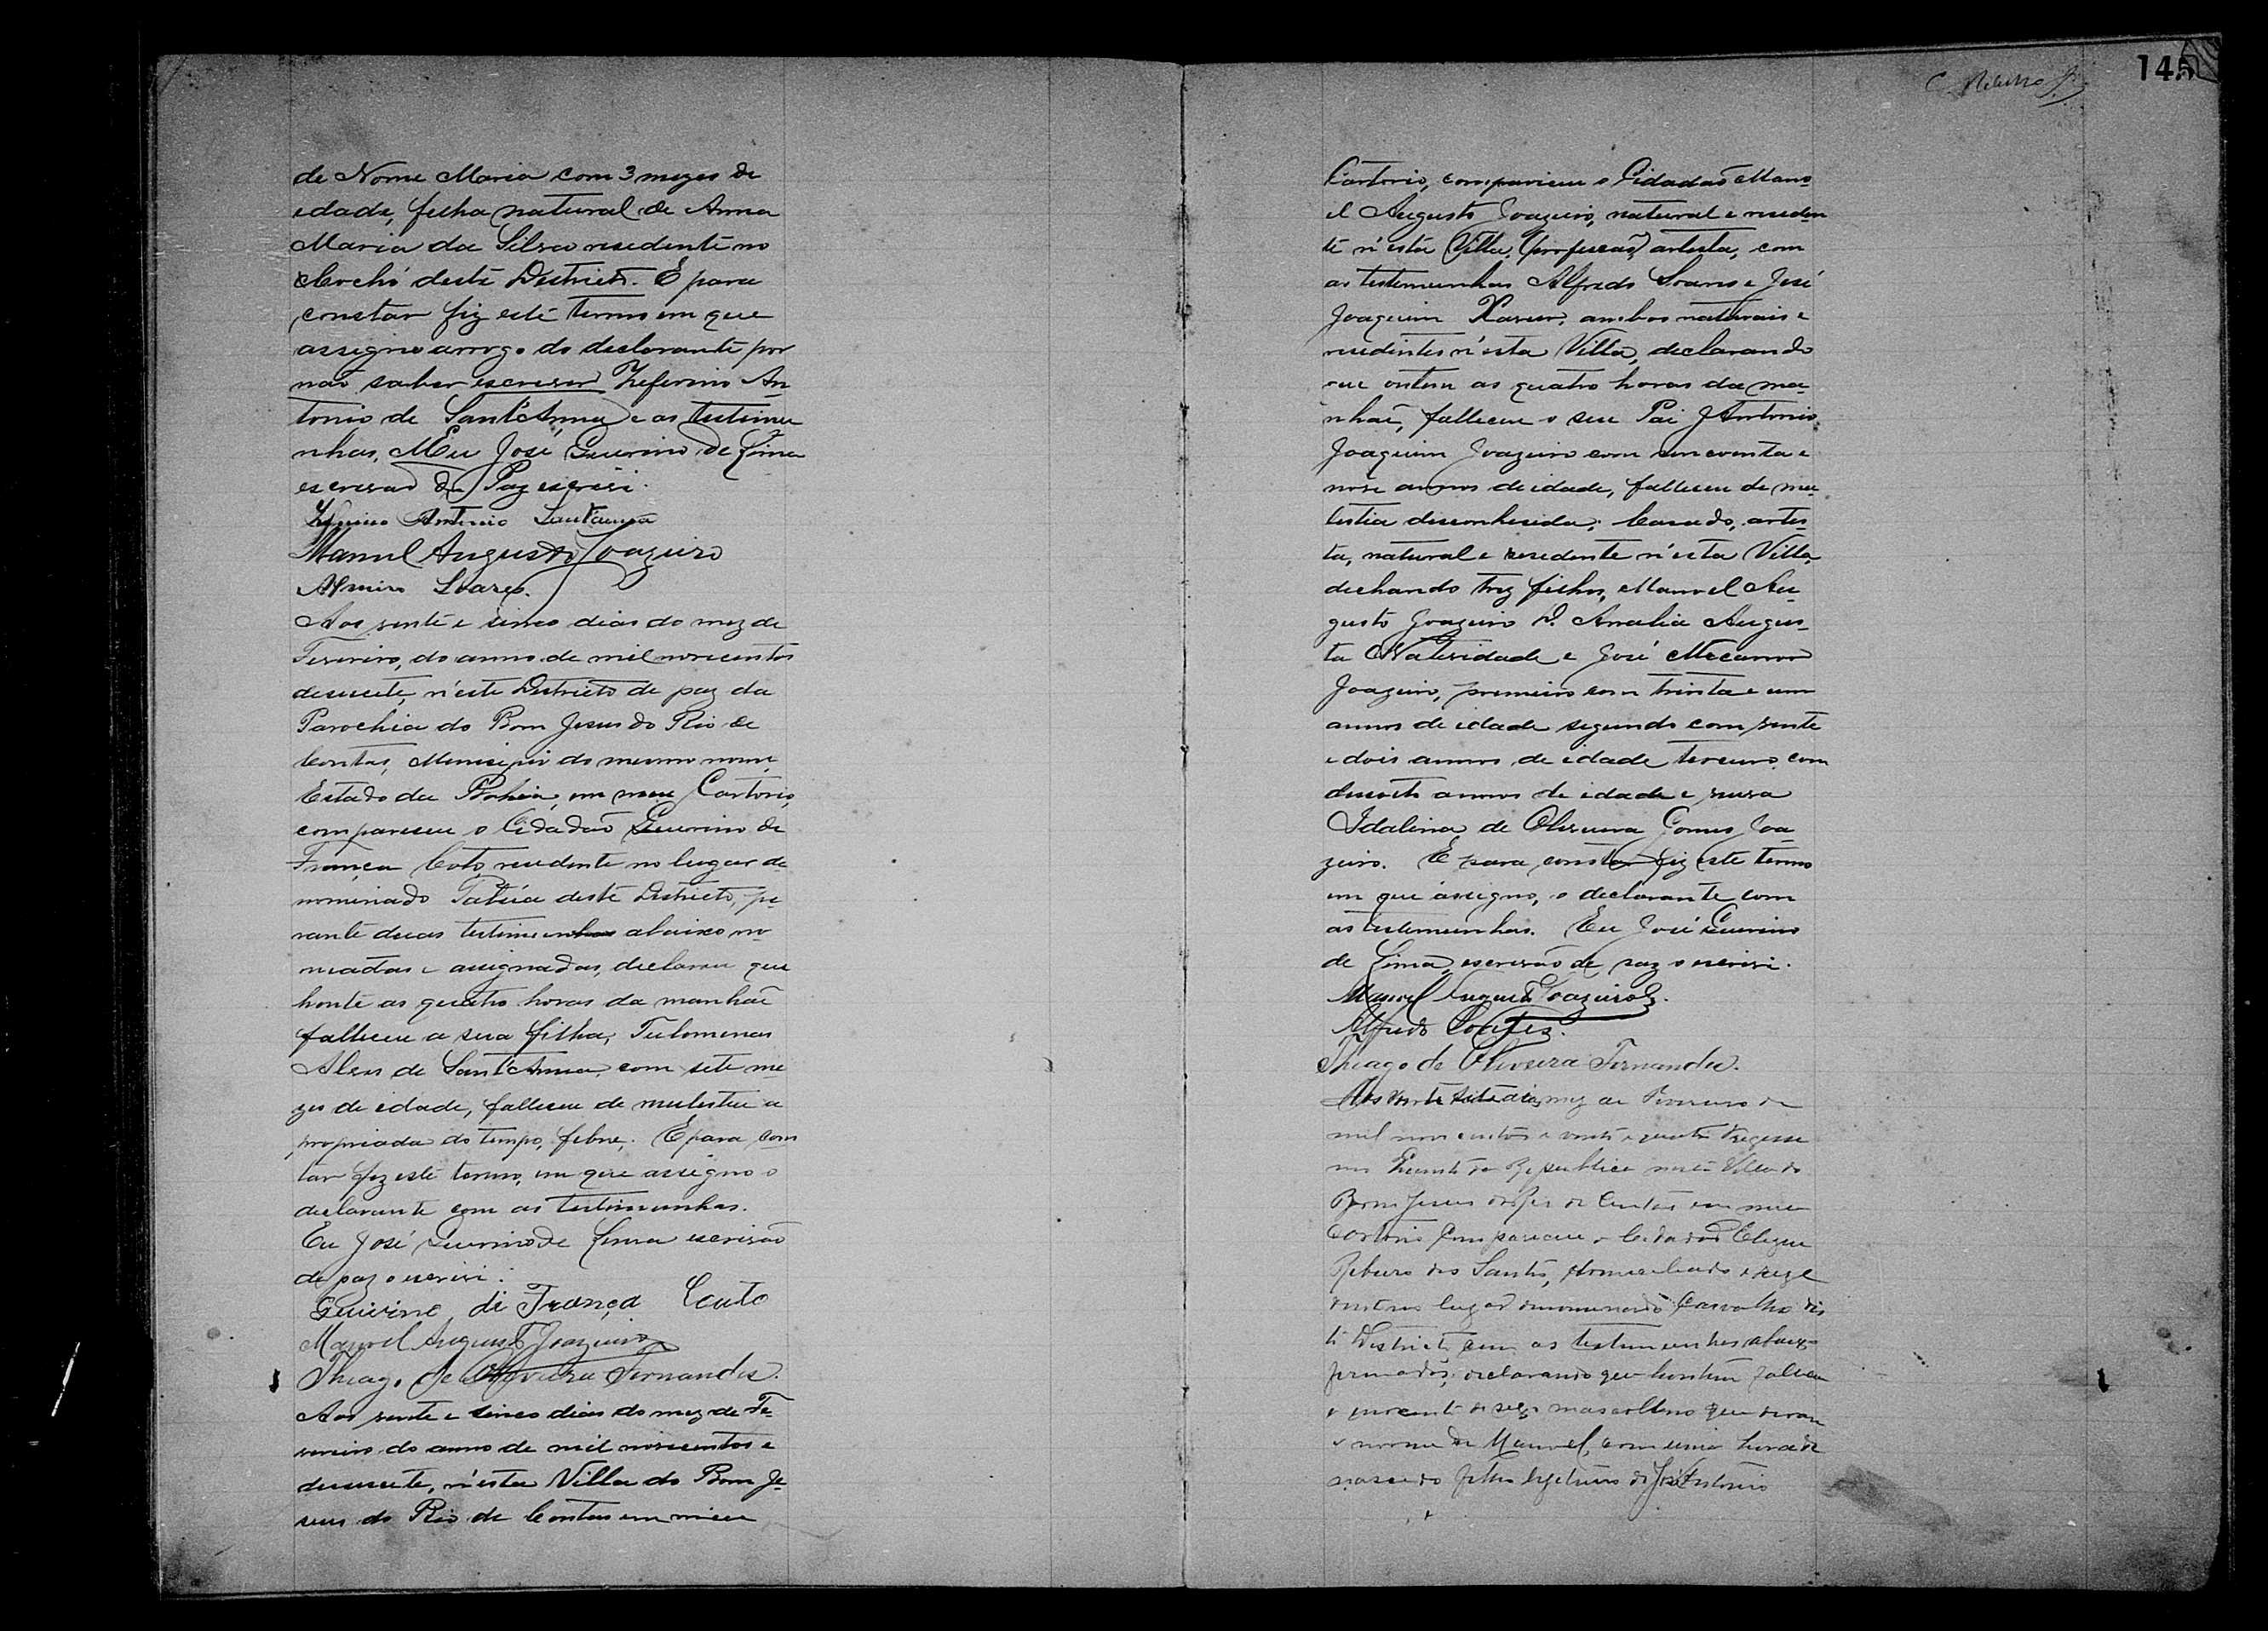 de Nome Maria com 3 mezes de
edade, filha natural de Anna
Maria da Silva residente no
deste Districto. E para
constar fiz este termo em que
assigno arrogo do declarante por
não saber escrever Zeferino An-
tonio de Sant'Anna e as testimu
nhas, Eu José Guirino de Lima
escrivão de Paz escrivi.
Antonio Santanna
Manuel Augusto Joazeiro
Soares.
Aos vinte e sinco dias do mez de
Fevreiro, do anno de mil novecentos
desesete, n'este Districto de paz da
Parochia do Bom Jesus do Rio de
Contas, Municipio do mesmo nome,
Estado da Bahia, em meu Cartorio,
compareceu o Cidadão Guirino de
França Coto, residente no lugar de
nominado Patúa deste Districto, pe-
rante duas testimunhas abaixo no-
meadas e assignadas, declarou que
honte as quatro horas da manhaã
falleceu a sua filha, Tulomenas
Alves de Sant'Anna, com sete me-
zes de idade, falleceu de mulestia a
propriada do tempo, febre. E para cons
tar fiz este termo, em que assigno o
declarante com as testimunhas.
Eu José Guirino de Lima escrivão
de paz o escrivi.
Guirino di França Couto
Manoel Augusto Joazeiro
Thiago de Oliveira Fernandes.
Aos vinte e sinco dias do mez de Fe-
vereiro do anno de mil novecentos e
desesete, n'esta Villa do Bom Je-
sus do Rio de Contas em meu
145
Cartorio, compareceu o Cidadaõ Mano-
el Augusto Joazeiro, natural e residen
te n'esta Villa, profissaõ artista, com
as testemunhas Alfredo Soares e José
Joaquim Xavier, ambos naturais e
residentes n'esta Villa, declarando
que ontem as quatro horas da ma-
nhaã, falleceu o seu Pai Antonio
Joaquim Joazeiro com concoenta e
nove annos de idade, falleceu de mu-
lestia desconhesida, Casado, artis-
ta, natural e residente n'esta Villa,
dechando trez filhos, Manoel Au-
gusto Joazeiro D. Amalia Augus-
ta Natividade e José
Joazeiro, premeiro com trinta e um
annos de idade segundo com vinte
e dois annos de idade terceiro com
desoito annos de idade e viuva
Idalina de Oliveira Gomes Joa
zeiro. E para constar fiz este termo
em que assigno, o declarante com
as testemunhas. Eu José Guirino
de Lima, escrivão de paz o escrivi.
Manoel Augusto Joazeiro.
Alfredo
Thiago de Oliveira Fernandes.
Aos vinte sete dias mez de Fevereiro de
mil nove centos e vinte e quatro
da Republica nesta Villa do
Bom Jesus do Rio de Contas em meu
Cartorio Compareceu o Cidadão
Ribeiro dos Santos, domiciliado e
lugar denominado Carvalho des
te Districto com as testemunhas abaix-
firmados, declarando que hontem faleceu
o inocente do sexo mascolino que deram
o nome de Manoel, com uma hora de
nascido filho legitimo de José Antonio